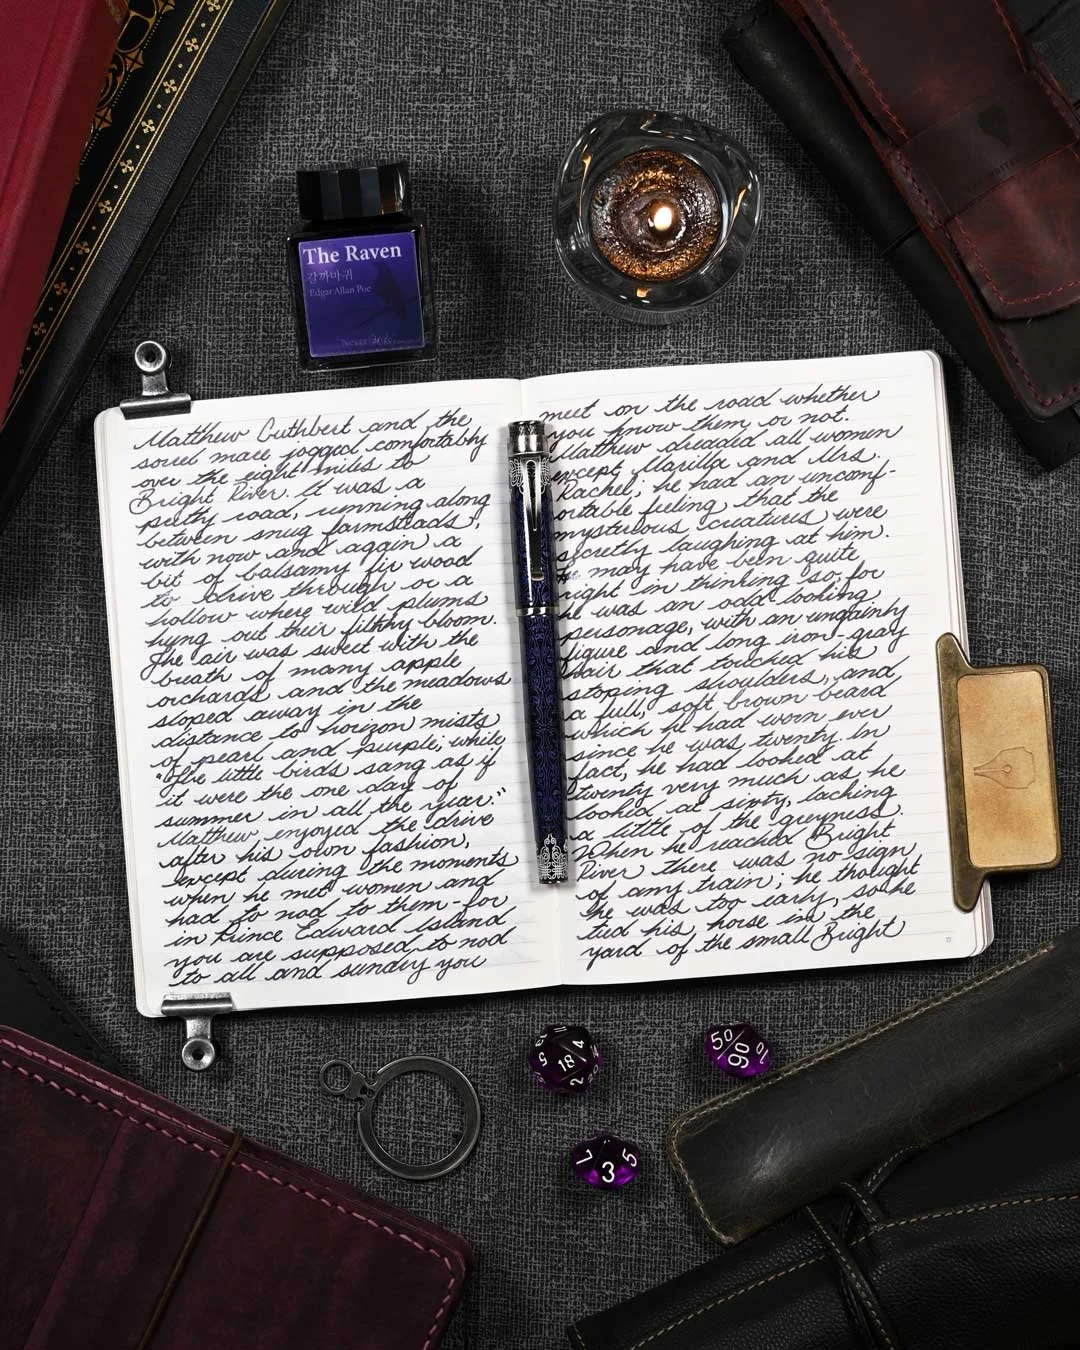 The Raven
갈까마귀
Edgar Allan Poe
Matthew Cuthbert and the
sorrel mare jogged comfortably
over the eight miles to
Bright River. It was a
pretty road, running along
between snug farmsteads,
with now and again a
bit of balsamy fir wood
to drive through or a
hollow where wild plums
hung out their filmy bloom.
The air was sweet with the
breath of many apple
orchards and the meadows
sloped away in the
distance to horizon mists
of pearl and purple; while
"The little birds sang as if
it were the one day of
summer in all the year."
Matthew enjoyed the drive
after his own fashion,
except during the moments
when he met women and
had to nod to them-for
in Prince Edward Island
you are supposed to nod
to all and sundry you
meet on the road whether
you know them or not.
Matthew dreaded all women
except Marilla and Mrs.
Rachel; he had an unconf-
ortable feeling that the
mysterious creatures were
secretly laughing at him.
He may have been quite
right in thinking so, for
he was an odd looking
personage, with an ungainly
figure and long iron-gray
hair that touched his
stoping shoulders, and
a full, soft brown beard
which he had worn ever
since he was twenty. In
fact, he had looked at
twenty very much as he
looked at sixty, lacking
a little of the greyness.
When he reached Bright
River there was no sign
of any train; he thought
he was too early, so he
tied his horse in the
yard of the small Bright
13
5
18
4
2
20
50
90
10
7
3
5